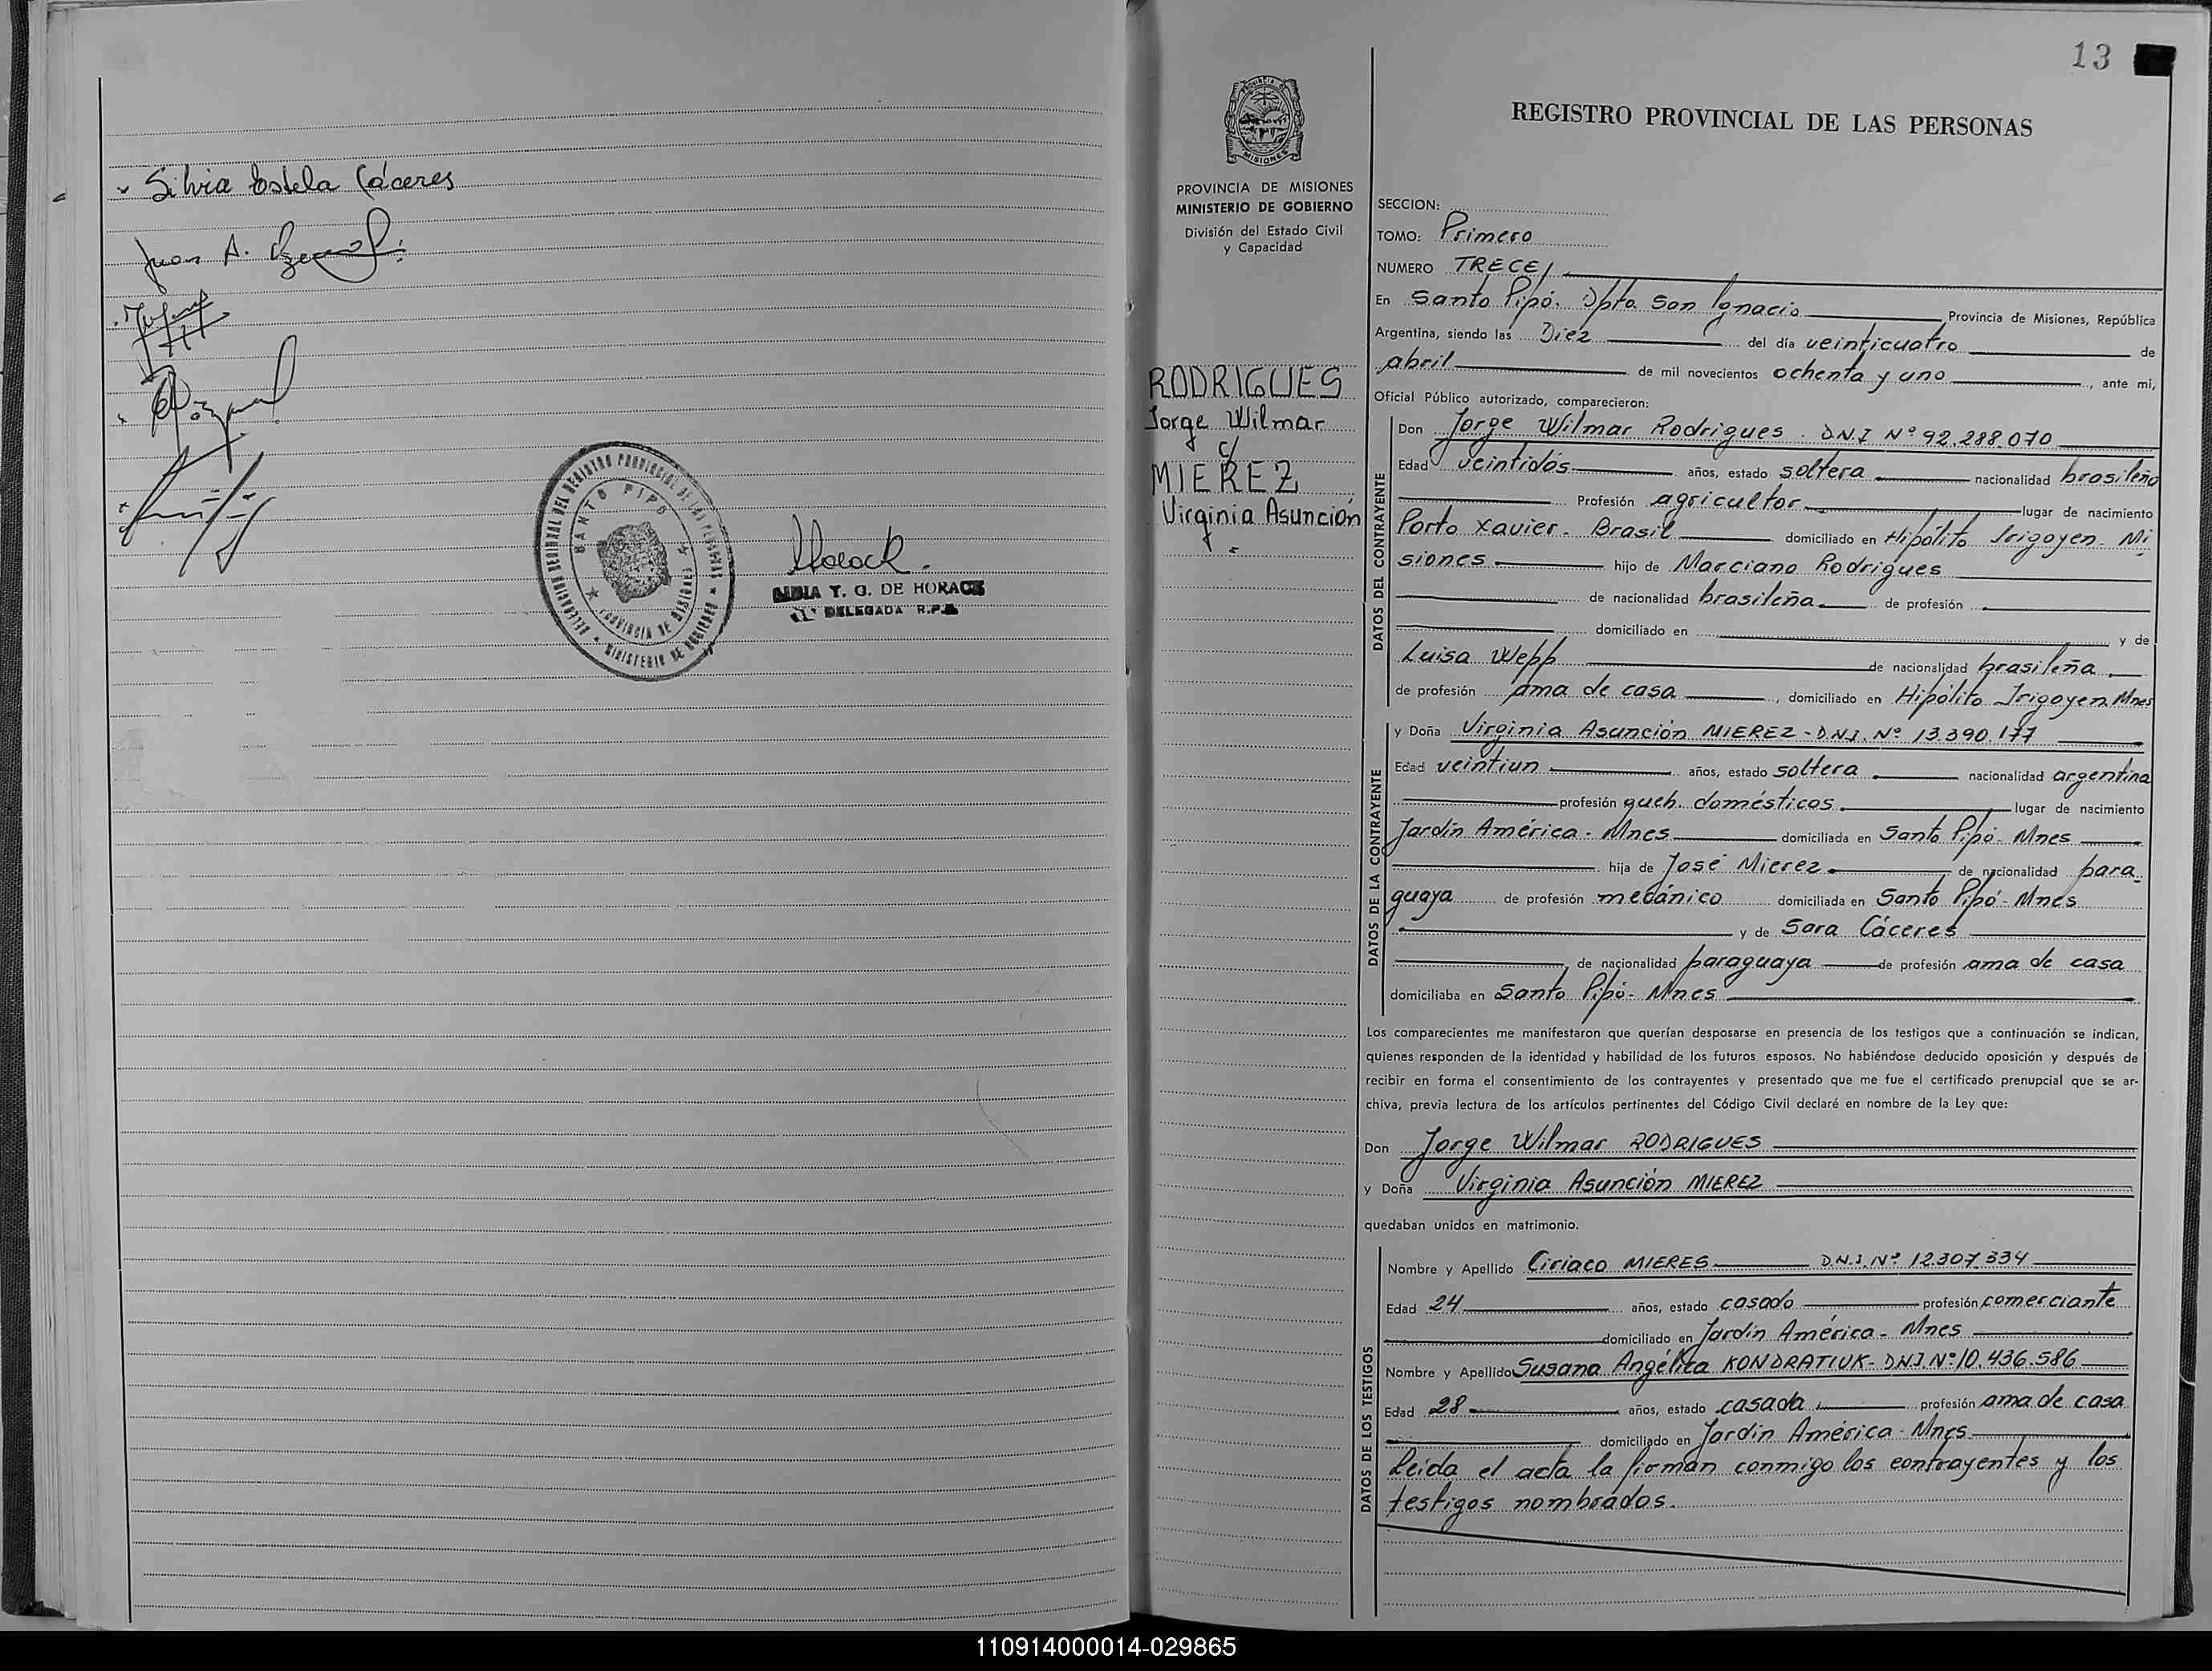 Silvia Estela Cáceres
Juan A.
DELEGACION REGIONAL DEL REGISTRO PROVINCIAL DE LAS PERSONAS
SANTO PIPO
PROVINCIA DE MISIONES
MINISTERIO DE GOBIERNO
Horack.
Y. G. DE HORACK
DELEGADA R.P.P.
13
PROVINCIA DE
MISIONES
PROVINCIA DE MISIONES
MINISTERIO DE GOBIERNO
División del Estado Civil
y Capacidad
RODRIGUES
Jorge Wilmar
c/
MIEREZ
Virginia Asunción
REGISTRO PROVINCIAL DE LAS PERSONAS
SECCION:
TOMO: Primero
NUMERO TRECE/
En Santo Pipó. Dpto San Ignacio Provincia de Misiones, República
Argentina, siendo las Diez del día veinticuatro de
abril de mil novecientos ochenta y uno, ante mi,
Oficial Público autorizado, comparecieron:
DATOS DEL CONTRAYENTE
Don Jorge Wilmar Rodrigues. D.N.I Nº 92.288.070
Edad veintidós años, estado soltera nacionalidad brasileña
Profesión agricultor lugar de nacimiento
Porto Xavier - Brasil domiciliado en Hipólito Irigoyen - Mi
siones hijo de Marciano Rodrigues
de nacionalidad brasileña de profesión
domiciliado en y de
Luisa Wepp de nacionalidad brasileña
de profesión ama de casa, domiciliado en Hipólito Irigoyen Mnes
DATOS DE LA CONTRAYENTE
y Doña Virginia Asunción MIEREZ - D.N.I. Nº 13.390.177
Edad veintiun años, estado soltera nacionalidad argentina
profesión queh. domésticos lugar de nacimiento
Jardín América - Mnes domiciliada en Santo Pipó - Mnes
hija de José Mierez de nacionalidad para_
guaya de profesión mecánico domiciliada en Santo Pipó - Mnes
y de Sara Cáceres
de nacionalidad paraguaya de profesión ama de casa
domiciliaba en Santo Pipó - Mnes
Los comparecientes me manifestaron que querían desposarse en presencia de los testigos que a continuación se indican,
quienes responden de la identidad y habilidad de los futuros esposos. No habiéndose deducido oposición y después de
recibir en forma el consentimiento de los contrayentes y presentado que me fue el certificado prenupcial que se ar-
chiva, previa lectura de los artículos pertinentes del Código Civil declaré en nombre de la Ley que:
Don Jorge Wilmar RODRIGUES
y Doña Virginia Asunción MIEREZ
quedaban unidos en matrimonio.
DATOS DE LOS TESTIGOS
Nombre y Apellido Ciriaco MIERES D.N.I. Nº 12.307.334
Edad 24 años, estado casado profesión comerciante
domiciliado en Jardín América - Mnes
Nombre y Apellido Susana Angélica KONDRATIUK - D.N.I. Nº 10.436.586
Edad 28 años, estado casada profesión ama de casa
domiciliado en Jardín América - Mnes
Leida el acta la firman conmigo los contrayentes y los
testigos nombrados.
110914000014-029865